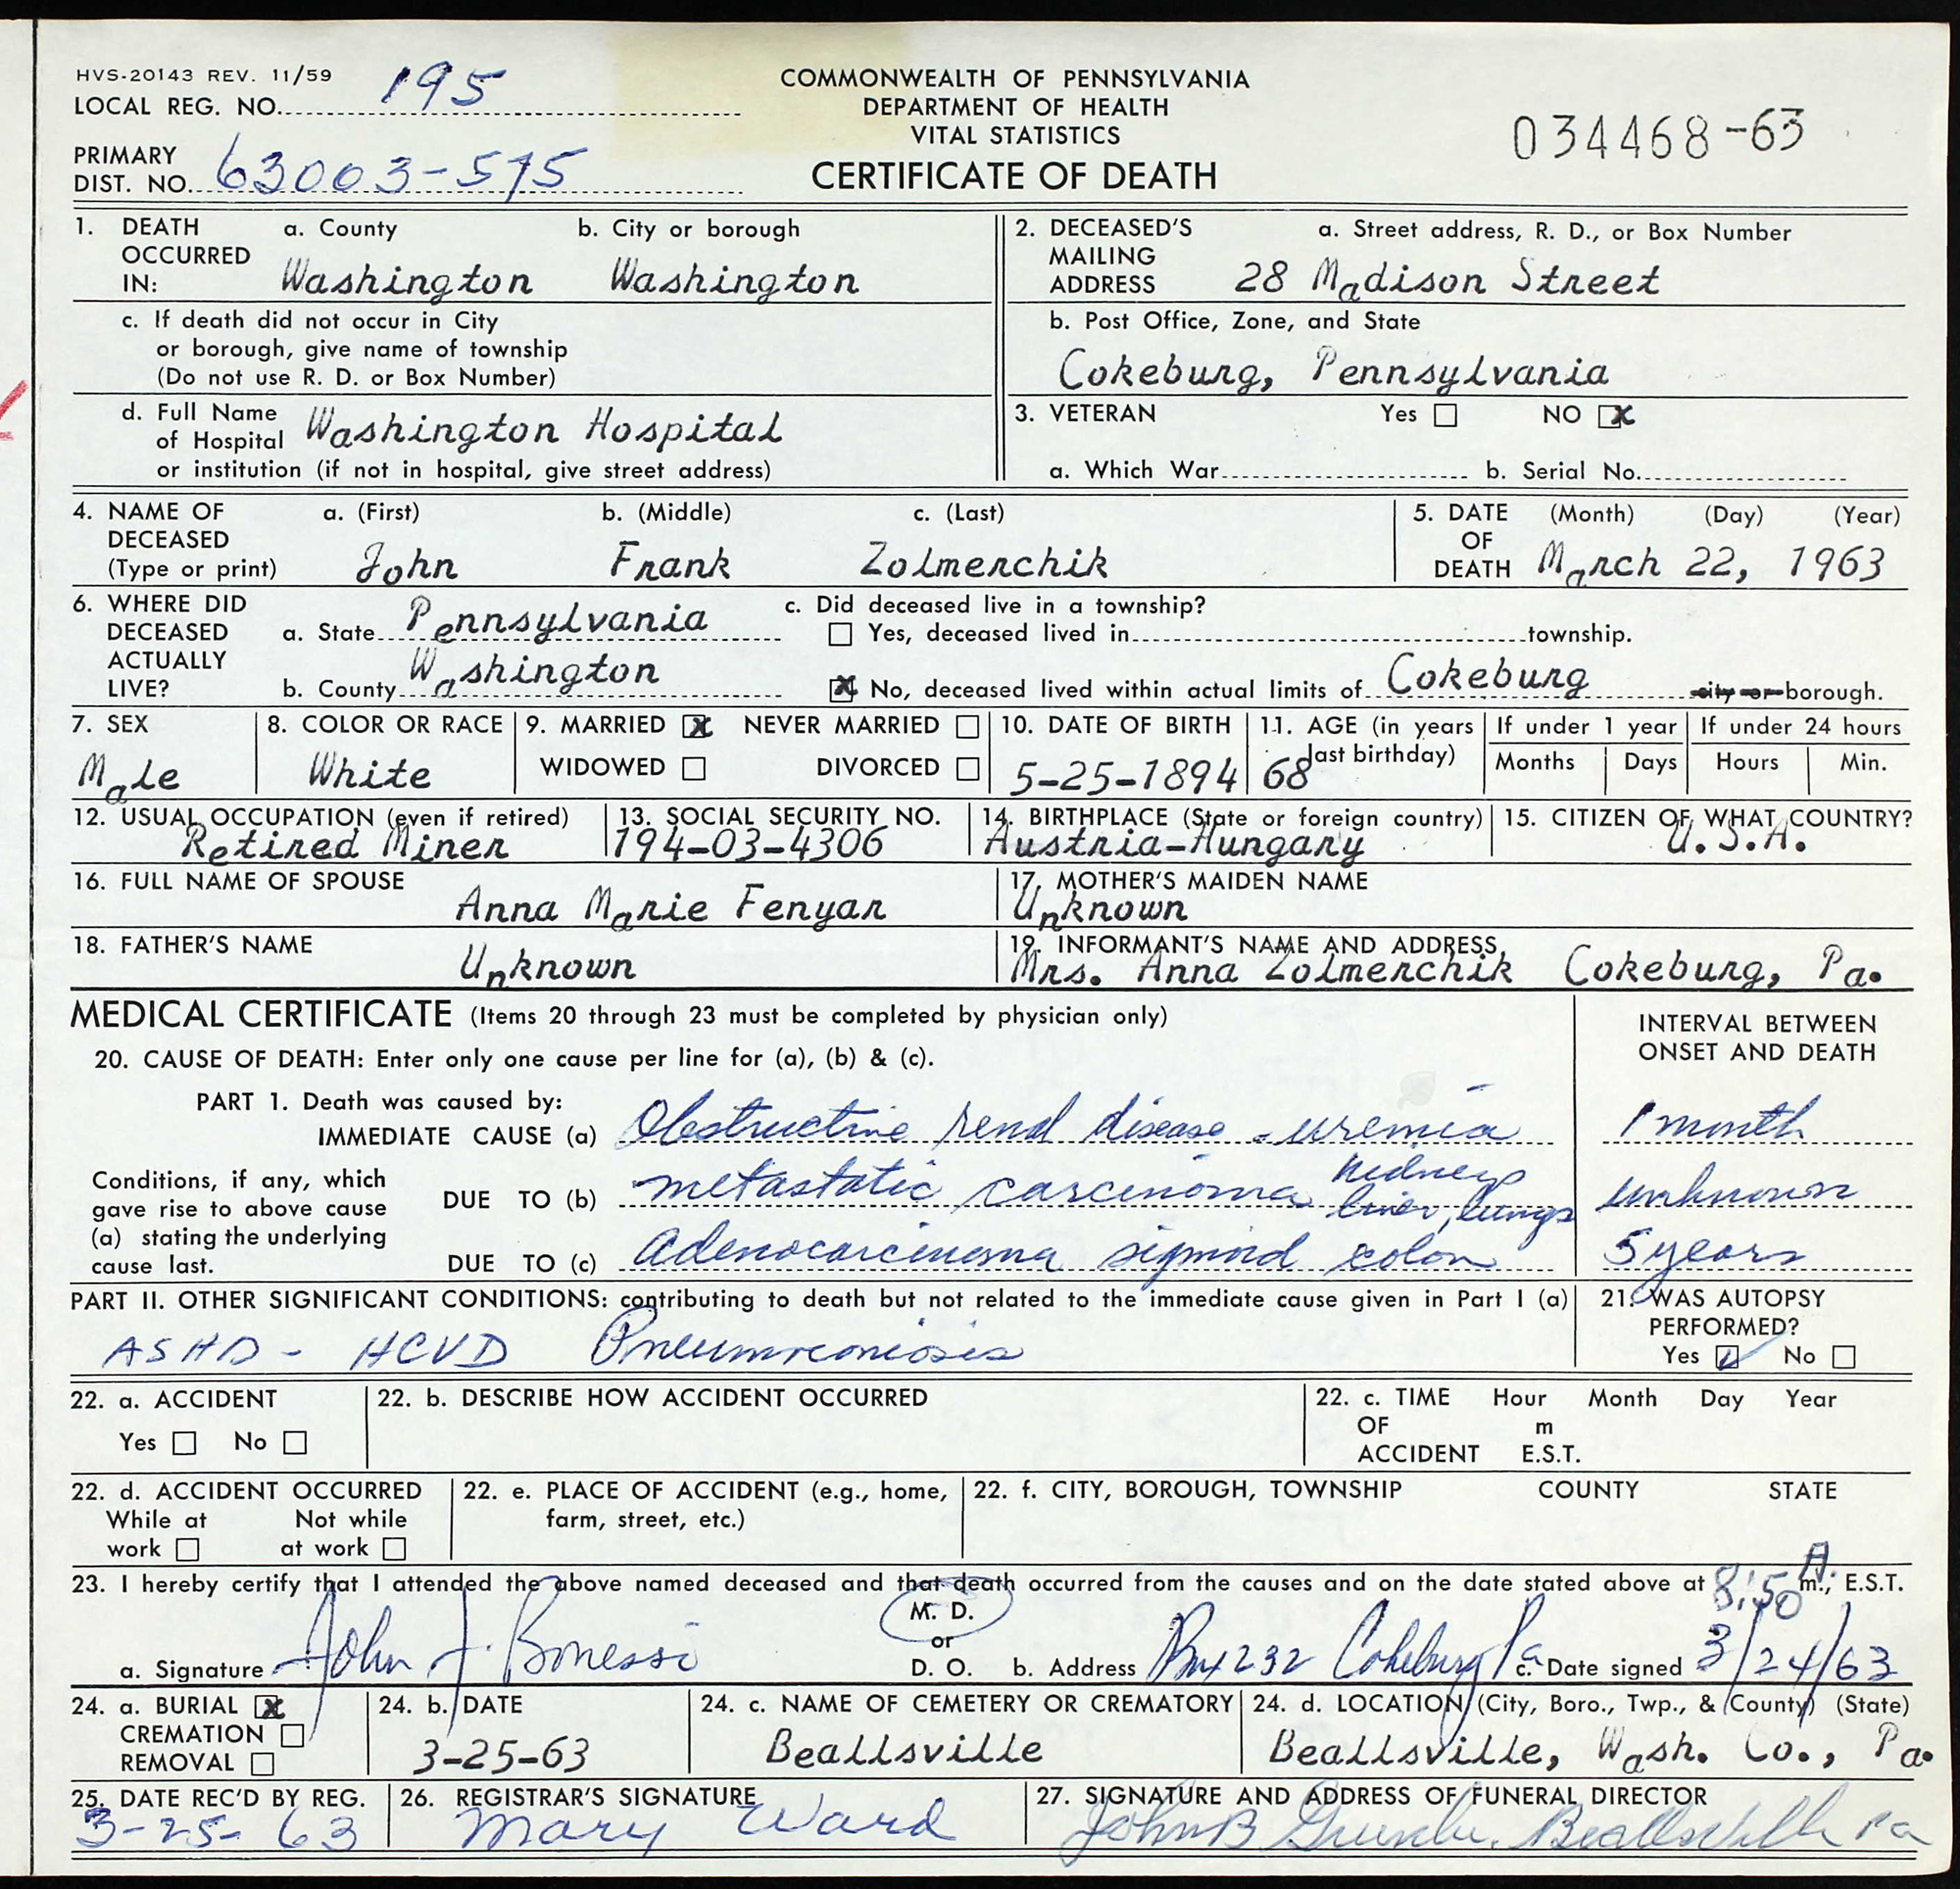 HVS-20143 REV. 11/59
LOCAL REG. NO. 195
PRIMARY
DIST. NO. 63003-575
COMMONWEALTH OF PENNSYLVANIA
DEPARTMENT OF HEALTH
VITAL STATISTICS
CERTIFICATE OF DEATH
034468-63
1. DEATH OCCURRED IN: a. County Washington b. City or borough Washington
c. If death did not occur in City
or borough, give name of township
(Do not use R. D. or Box Number)
d. Full Name
of Hospital Washington Hospital
or institution (if not in hospital, give street address)
2. DECEASED'S MAILING ADDRESS a. Street address, R. D., or Box Number
28 Madison Street
b. Post Office, Zone, and State
Cokeburg, Pennsylvania
3. VETERAN Yes NO X
a. Which War b. Serial No.
4. NAME OF DECEASED (Type or print) a. (First) b. (Middle) c. (Last)
John Frank Zolmerchik
5. DATE OF DEATH (Month) (Day) (Year)
March 22, 1963
6. WHERE DID DECEASED ACTUALLY LIVE? a. State Pennsylvania
b. County Washington
c. Did deceased live in a township?
Yes, deceased lived in township.
X No, deceased lived within actual limits of Cokeburg city or borough.
7. SEX Male
8. COLOR OR RACE White
9. MARRIED X NEVER MARRIED
WIDOWED DIVORCED
10. DATE OF BIRTH 5-25-1894
11. AGE (in years last birthday) 68
If under 1 year Months Days
If under 24 hours Hours Min.
12. USUAL OCCUPATION (even if retired)
Retired Miner
13. SOCIAL SECURITY NO.
194-03-4306
14. BIRTHPLACE (State or foreign country)
Austria-Hungary
15. CITIZEN OF WHAT COUNTRY?
U.S.A.
16. FULL NAME OF SPOUSE
Anna Marie Fenyar
17. MOTHER'S MAIDEN NAME
Unknown
18. FATHER'S NAME
Unknown
19. INFORMANT'S NAME AND ADDRESS
Mrs. Anna Zolmerchik Cokeburg, Pa.
MEDICAL CERTIFICATE (Items 20 through 23 must be completed by physician only)
INTERVAL BETWEEN
ONSET AND DEATH
20. CAUSE OF DEATH: Enter only one cause per line for (a), (b) & (c).
PART 1. Death was caused by:
IMMEDIATE CAUSE (a) Obstructive renal disease - uremia 1 month
Conditions, if any, which
gave rise to above cause
(a) stating the underlying
cause last.
DUE TO (b) metastatic carcinoma kidneys liver, lungs unknown
DUE TO (c) Adenocarcinoma sigmoid colon 5 years
PART II. OTHER SIGNIFICANT CONDITIONS: contributing to death but not related to the immediate cause given in Part I (a)
ASHD - HCVD Pneumoconiosis
21. WAS AUTOPSY
PERFORMED?
Yes ✓ No
22. a. ACCIDENT
Yes No
22. b. DESCRIBE HOW ACCIDENT OCCURRED
22. c. TIME OF ACCIDENT Hour Month Day Year
m
E.S.T.
22. d. ACCIDENT OCCURRED
While at work Not while at work
22. e. PLACE OF ACCIDENT (e.g., home,
farm, street, etc.)
22. f. CITY, BOROUGH, TOWNSHIP COUNTY STATE
23. I hereby certify that I attended the above named deceased and that death occurred from the causes and on the date stated above at 8:50 A. m., E.S.T.
a. Signature John J. Bonessi M. D. or D. O. b. Address Box 232 Cokeburg Pa c. Date signed 3/24/63
24. a. BURIAL X
CREMATION
REMOVAL
24. b. DATE
3-25-63
24. c. NAME OF CEMETERY OR CREMATORY
Beallsville
24. d. LOCATION (City, Boro., Twp., & County) (State)
Beallsville, Wash. Co., Pa.
25. DATE REC'D BY REG.
3-25-63
26. REGISTRAR'S SIGNATURE
Mary Ward
27. SIGNATURE AND ADDRESS OF FUNERAL DIRECTOR
John B Beallsville Pa